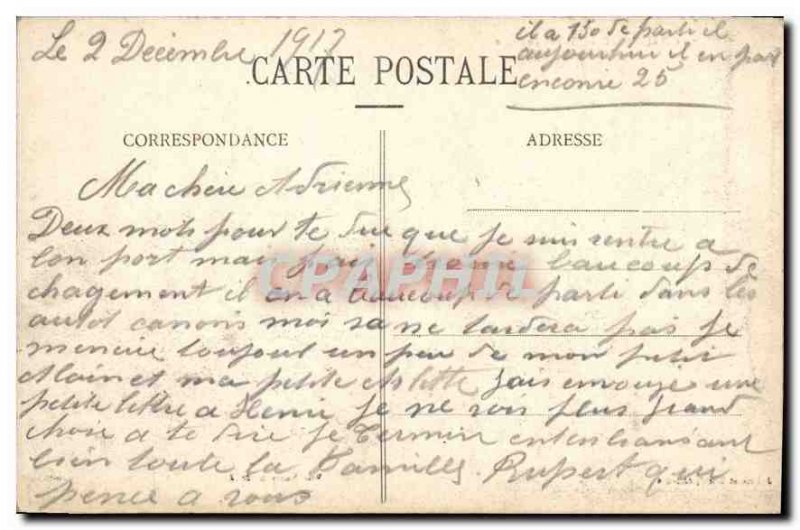 Le 2 Décembre 1917
il a 150 de parti il
aujourdhui il en part
enconre 25
CARTE POSTALE
CORRESPONDANCE
ADRESSE
Ma chère Adrienne
Deux mots pour te dire que je suis rentré a
bon port mais j'ai beaucoup de
chagement il en a beaucoup de parti dans les
autot canons moi sa ne tardera pas je
menuie toujout un peu de mon petit
et ma petite Arlette jais envoyé une
petite lettre a Henri je ne vois plus grand
choie a te dire je termin enten
bien toute la Famille. Rupert qui
pence a vous
CPAPHIL